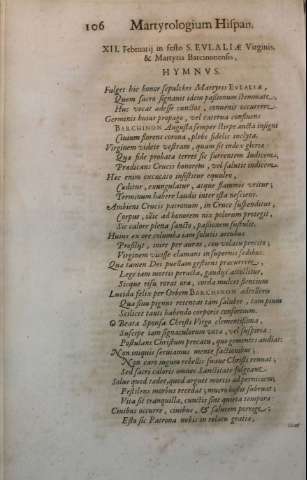 106 Martyrologium Hispan.
XII. Februarij in festo S. EVLALIÆ Virginis,
& Martyris Barcinonensis,
HYMNVS.
Fulget hic honor sepulchri Martyris EVLALIÆ,
Quem sacro signauit idem passionum stemmate
Huc vocat adesse cunctos, conuenite occurrere
Germinis huius propago, vel caterua confluens
BARCHINON Augusta semper stirpe aucta insigni
Ciuium florens corona, plebs fidelis inclyta.
Virginem videte vestram, quam sit index gloria:
Qua fide probata terret sic furentem Iudicem,
Prædicans Crucis honorem, vel salutis indicem.
Hæc enim eneccata insistitur equuleo,
Cæditur, exungulatur, atque flammis vritur;
Terminum habere laudis inter ista nesciens.
Ambiens Crucis patronum, in Cruce suspenditur,
Corpus, illic ad honorem nix polorum protegit,
Sic calore plena sancto, passionem sustulit.
Huius ex ore columba tam salutis
Prosilijt, inire per auras, ceu volans
Virginem vicisse clamans in supernis sedibus.
Qua tamen Dei puellam gestiens præcurrere,
Lege iam mortis peracta, gaudijs attollitur,
Sicque visu rorat ora, corda mulcet sentium
Lucida felix per Orbem BARCHINON adtolleris
Qua sinu pignus retentas tam salubre, tam pium
Scilicet tanti habendo corporis confinium.
O Beata Sponsa Christi Virgo clementissima,
Suscipe iam singulorum vota, vel suspiria:
Postulans Christum precatu, quo gementes audiat:
Non iniquis seruiamus mente factionibus;
Non caro iugum rebellis fuscet Christi renuat,
Sed sacri caloris omnes Sanctitate fulgeant.
Salue quod tædet, quod arguit mortis ad perniciem,
Pestilens morbus recedat, mucro hostis subruat;
Vita sit tranquilla, cunctis sint quieta tempora:
Ciuibus occurre, ciuibus, & salutem porrige;
Esto sic Patrona nobis in relatu gratiæ,